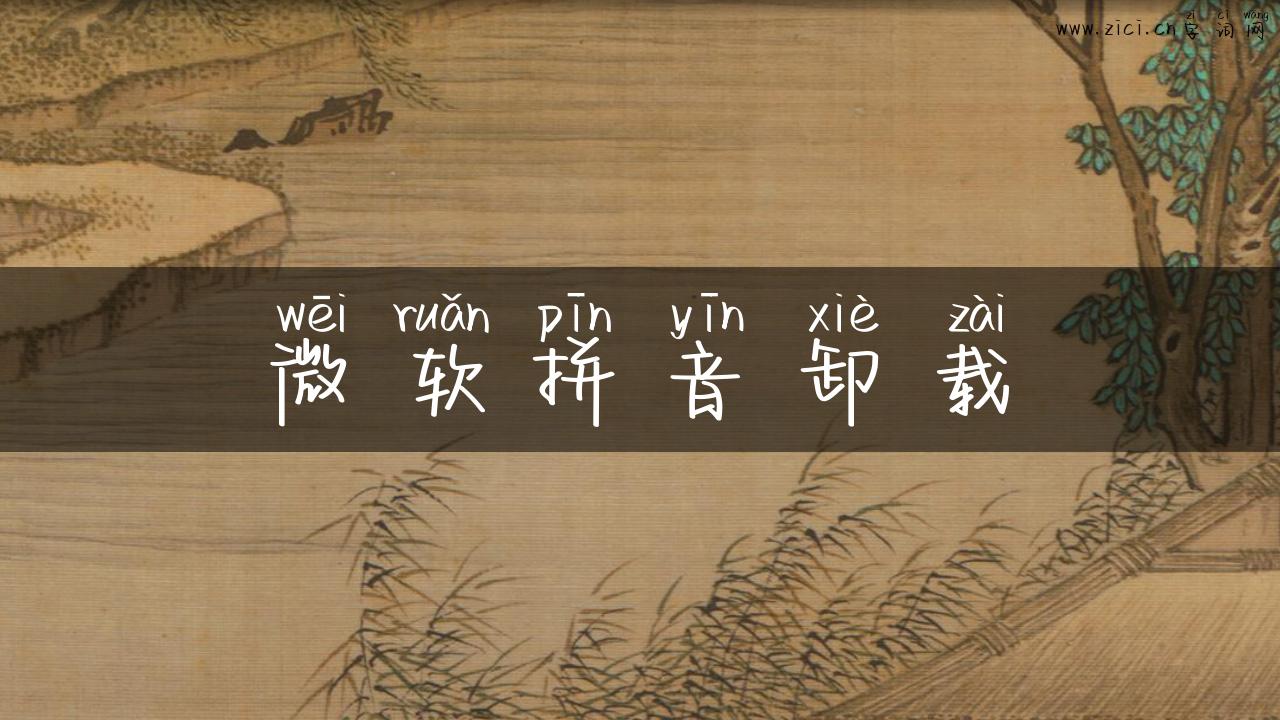 zì cí wǎng
www.zici.cn字词网
wēi ruǎn pīn yīn xiè zài
微软拼音卸载